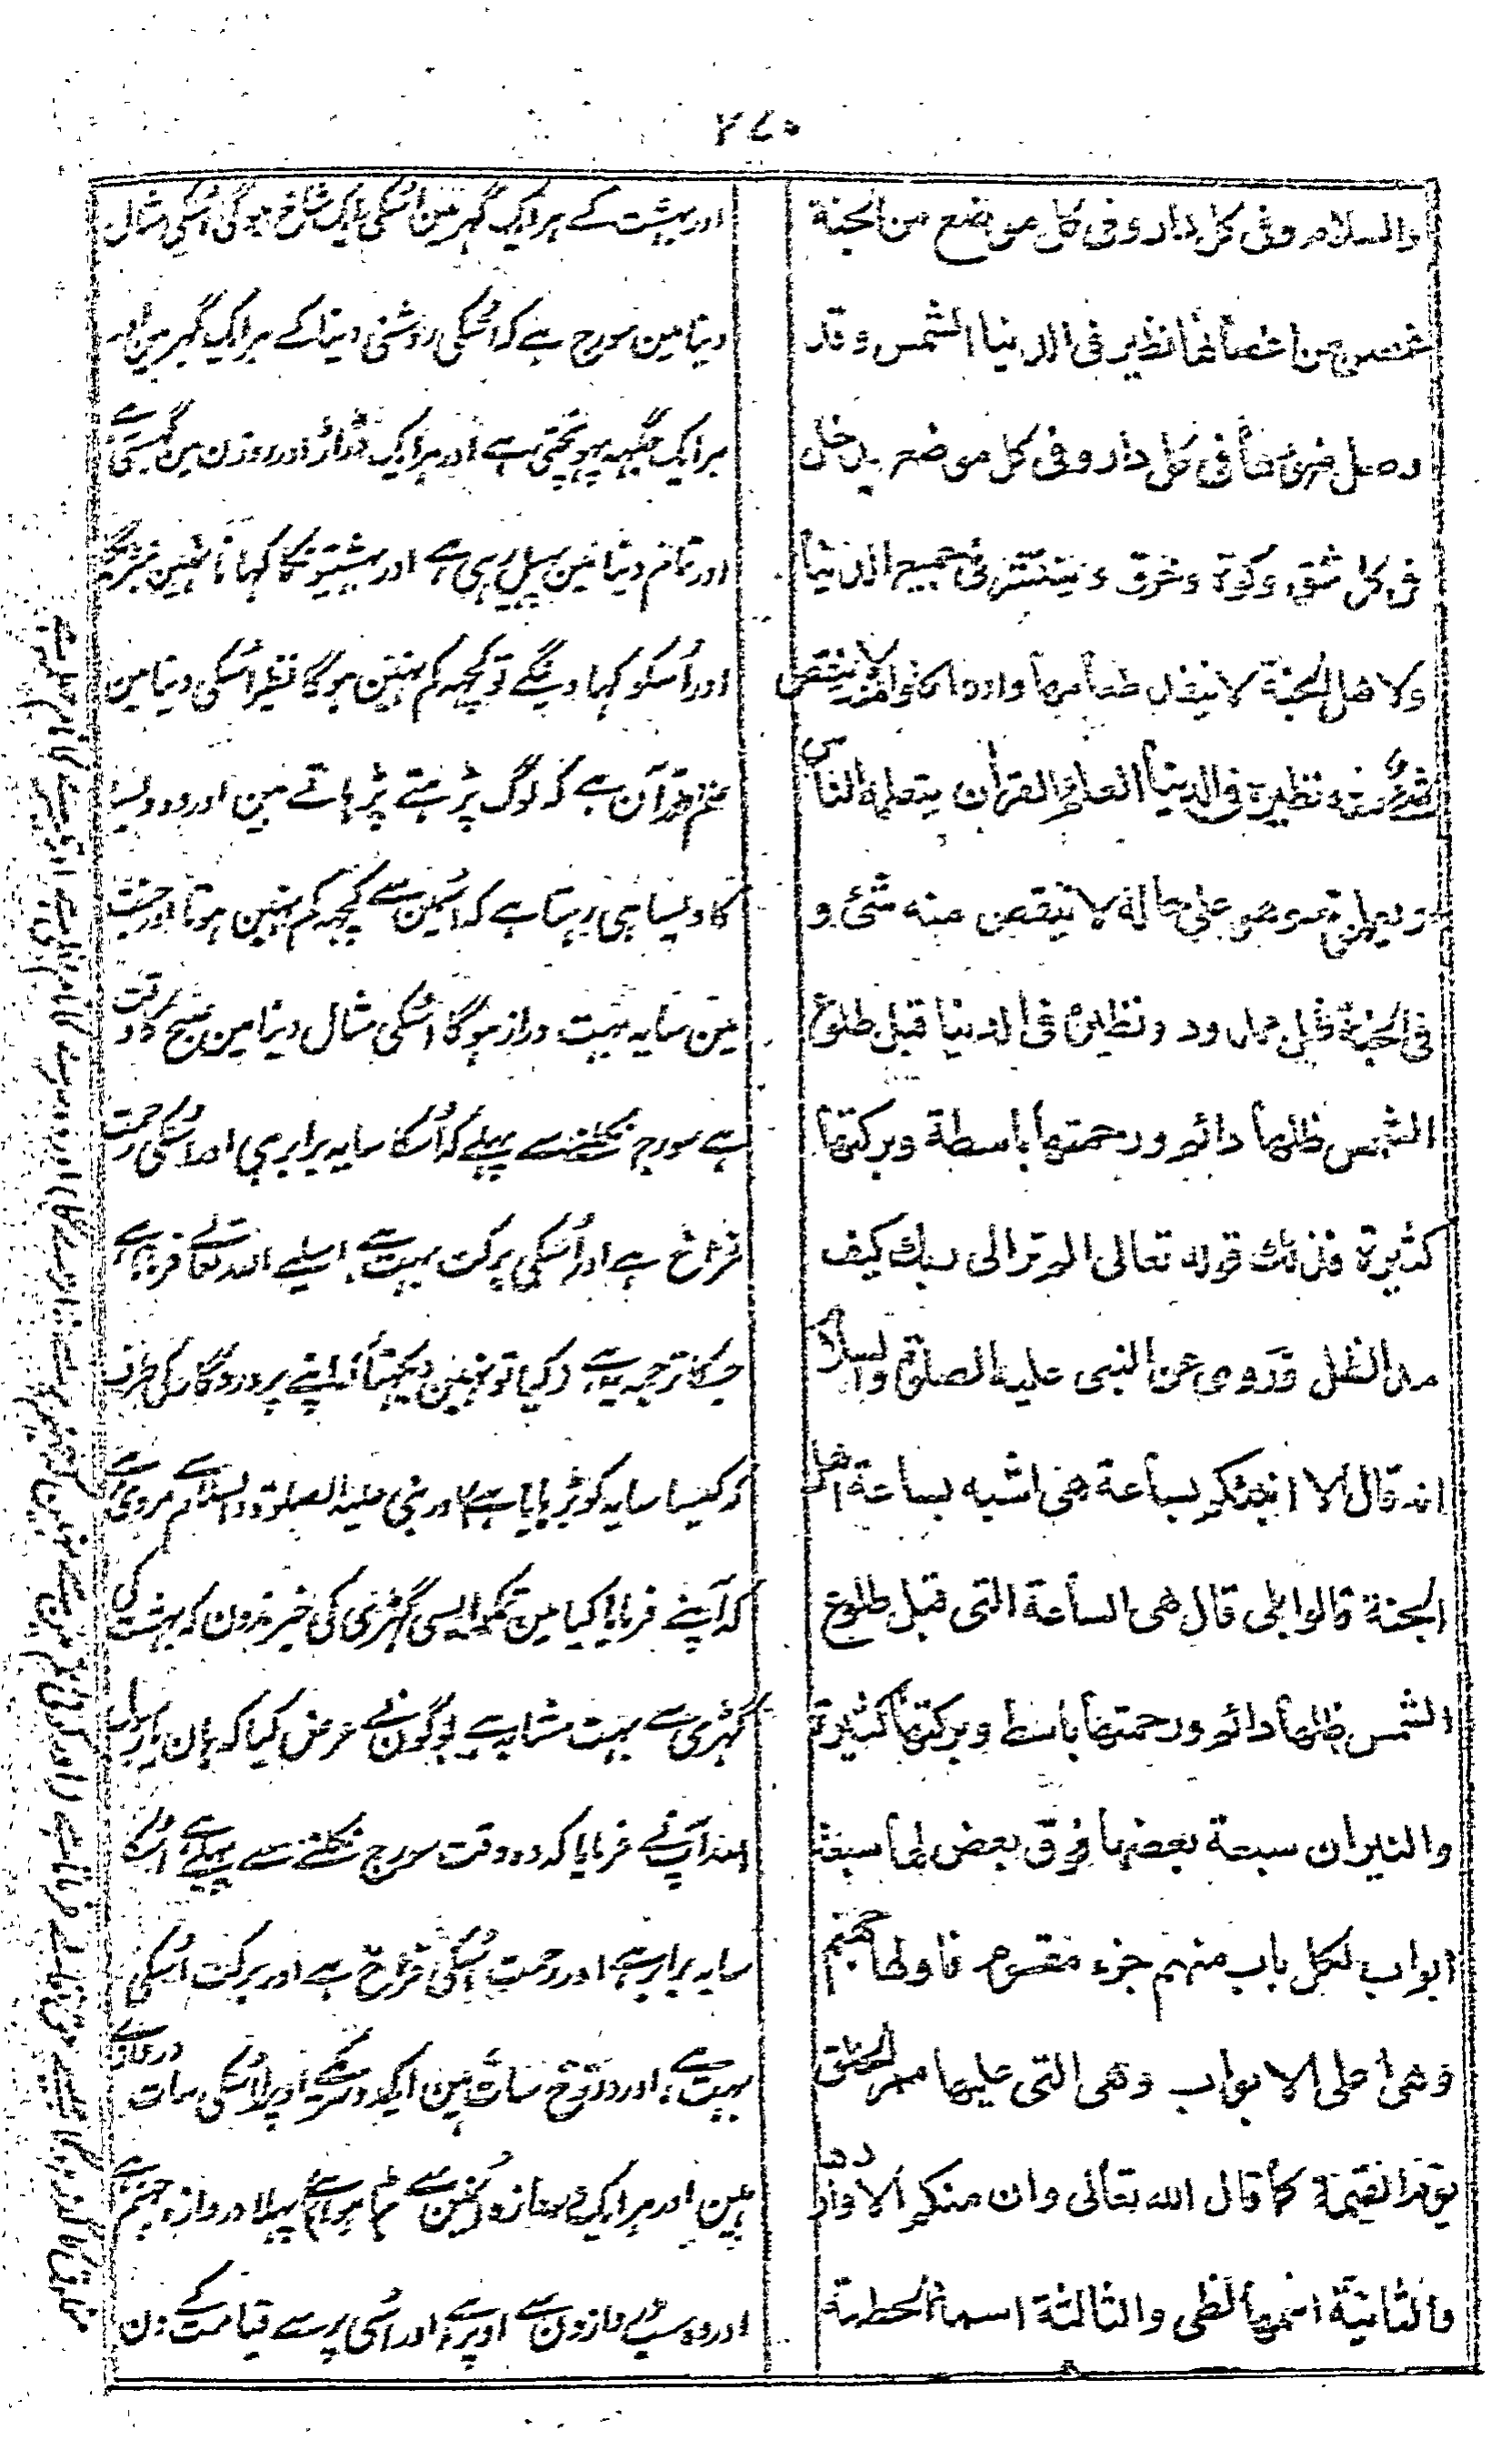 ۲۷۰
والسلام وفى كل دار وفى كل موضع من الجنة
غصن من اغصانها نظير فى الدنيا الشمس وقد
وصل ضوئها فى كل دار وفى كل موضع يدخل
فى كل شق وكوة وخرق وينتشر فى جميع الدنيا
ولاهل الجنة لا ينفد طعامها واردا كانوا لا ينتقص
شئ منه ونظيره فى الدنيا العلم القران يتعلمه الناس
ويعلمون وهو على حاله لا ينقص منه شئ و
فى الجنة ظل ممدود ونظيره فى الدنيا قبل طلوع
الشمس ظلها دائم ورحمتها باسطة وبركتها
كثيرة فذلك قوله تعالى الم تر الى ربك كيف
مد الظل وروى عن النبى عليه الصلوة والسلام
انه قال الا انبئكم بساعة هى اشبه بساعة اهل
الجنة قالوا بلى قال هى الساعة التى قبل طلوع
الشمس ظلها دائم ورحمتها باسط وبركتها كثيرة
والنيران سبعة بعضها فوق بعض لها سبعة
ابواب لكل باب منهم جزء مقسوم فاولها جهنم
وهى اعلى الابواب وهى التى عليها ممر الخلق
يوم القيمة كما قال الله تعالى وان منكم الا واردها
والثانية اسمها لظى والثالثة اسمها الحطمة
اور بہشت کے ہر ایک گہر مین اُسکی ایک شاخ ہوگی اُسکی مثال
دنیا مین سورج ہے کہ اُسکی روشنی دنیا کے ہر ایک گہر مین اور
ہر ایک جگہہ پہونچتی ہے اور ہر ایک دڑاڑ اور روزن مین گہستی ہے
اور تمام دنیا مین پہیل رہی ہے اور بہشتیونکا کہانا نہین
اور اُسکو کہاوینگے تو کچہہ کم نہین ہوگا نظیر اُسکی دنیا مین
علم قرآن ہے کہ لوگ پڑہتے پڑہاتے ہین اور وہ ویسا
کا ویسا ہی رہتا ہے کہ اُسمین سے کچہہ کم نہین ہوتا اور جنت
مین سایہ بہت دراز ہوگا اُسکی مثال دنیا مین صبح کا وقت
ہے سورج نکلنے سے پہلے کہ اُسکا سایہ برابر ہی اور اُسکی رحمت
فراخ ہے اور اُسکی برکت بہت ہے اسلیے اللہ تعالے فرماتا ہے
جسکا ترجمہ یہ ہے (کیا تو نہین دیکہتا اپنے پروردگار کی طرف
کہ کیسا سایہ کو بڑہایا ہے) اور نبی علیہ الصلوۃ والسلام سے مروی ہے
کہ آپنے فرمایا کیا مین تمکو ایسی گہڑی کی خبر ندون کہ بہشت کی
گہڑی سے بہت مشابہ ہے لوگون نے عرض کیا کہ ہان یا رسول
اللہ آپنے فرمایا کہ وہ وقت سورج نکلنے سے پہلے ہے اُسکا
سایہ برابر ہے اور رحمت اُسکی فراخ ہے اور برکت اُسکی
بہت ہے، اور دوزخ سات ہین ایک دوسرے کے اوپر اُسکی سات دروازے
ہین اور ہر ایک دروازہ اُنمین سے پہلا دروازہ جہنم ہے
اور وہ سب دروازون سے اوپر ہے اور اُسی پر سے قیامت کے دن